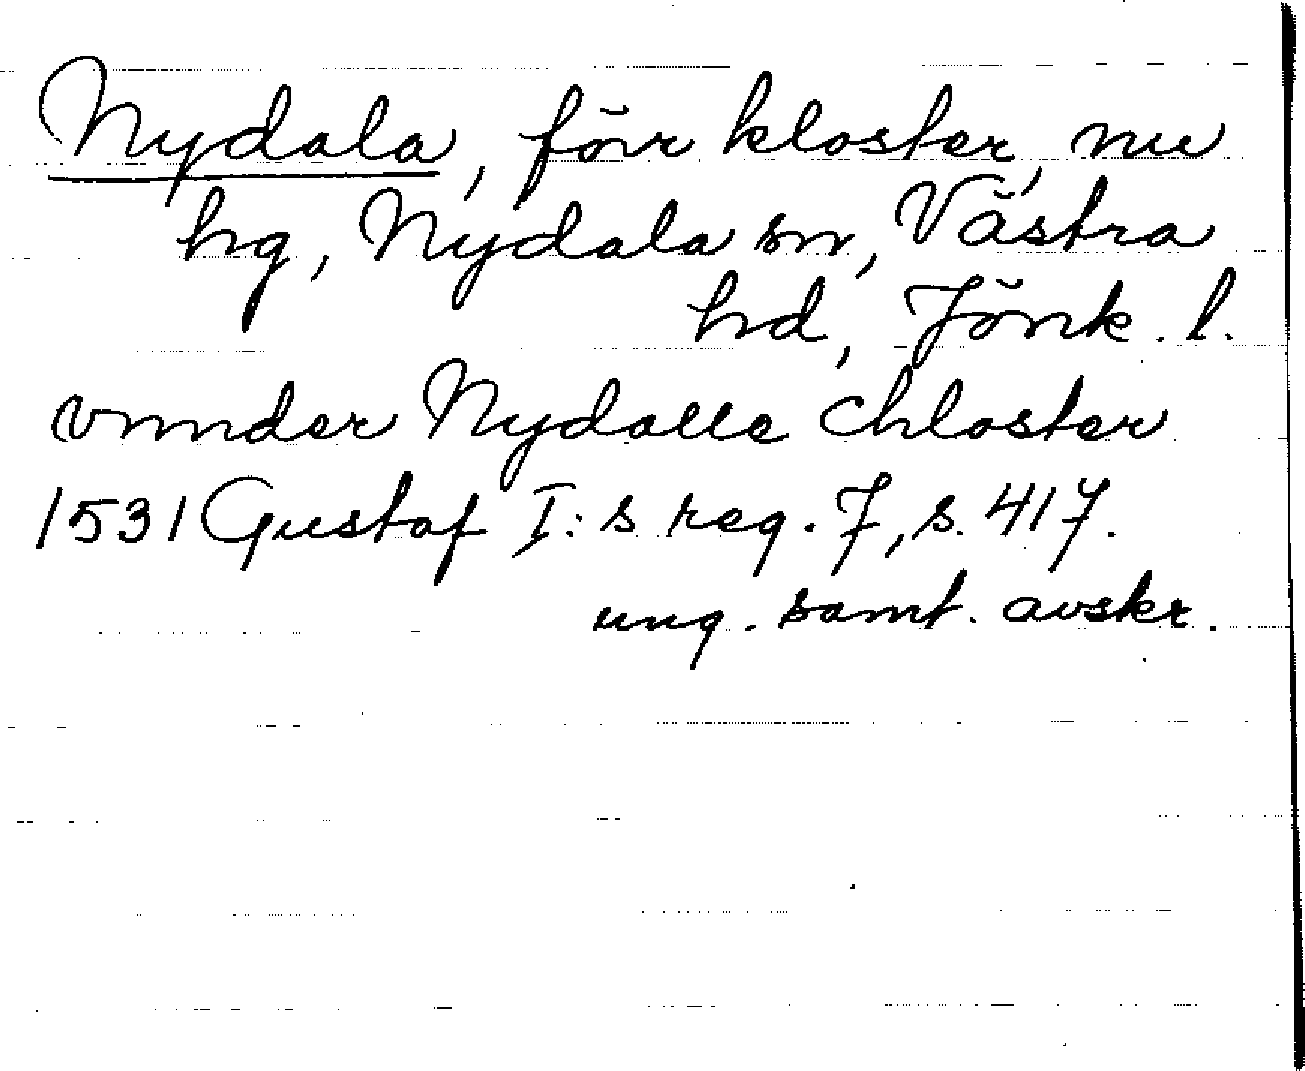 Nydala, förr kloster, nu
hg, Nydala sn, Västra
hd, Jönk. l.
vnnder Nydalle Chloster
1531 Gustaf I:s reg. 7, s. 417.
ung. samt. avskr.